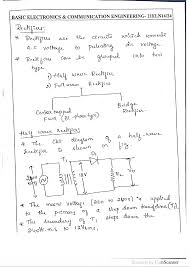 BASIC ELECTRONICS & COMMUNICATION ENGINEERING-
Rectifier:-
* Rectifiers are the circuits which converts
A.C voltage to pulsating dc voltage.
* Rectifiers can be grouped into two
types
1) Half wave Rectifier
2) Full wave Rectifier
Center tapped
FWR (Bi-phase type)
Bridge
Rectifier
Half wave rectifier
* The ckt diagram of a half-wave
rectifier is shown in fig.
* The mains voltage (220 to 240V) is applied
to the primary of a step down transformer (T1)
* The secondary of T1 steps down the
240V rms to 12V rms,
Scanned by CamScanner